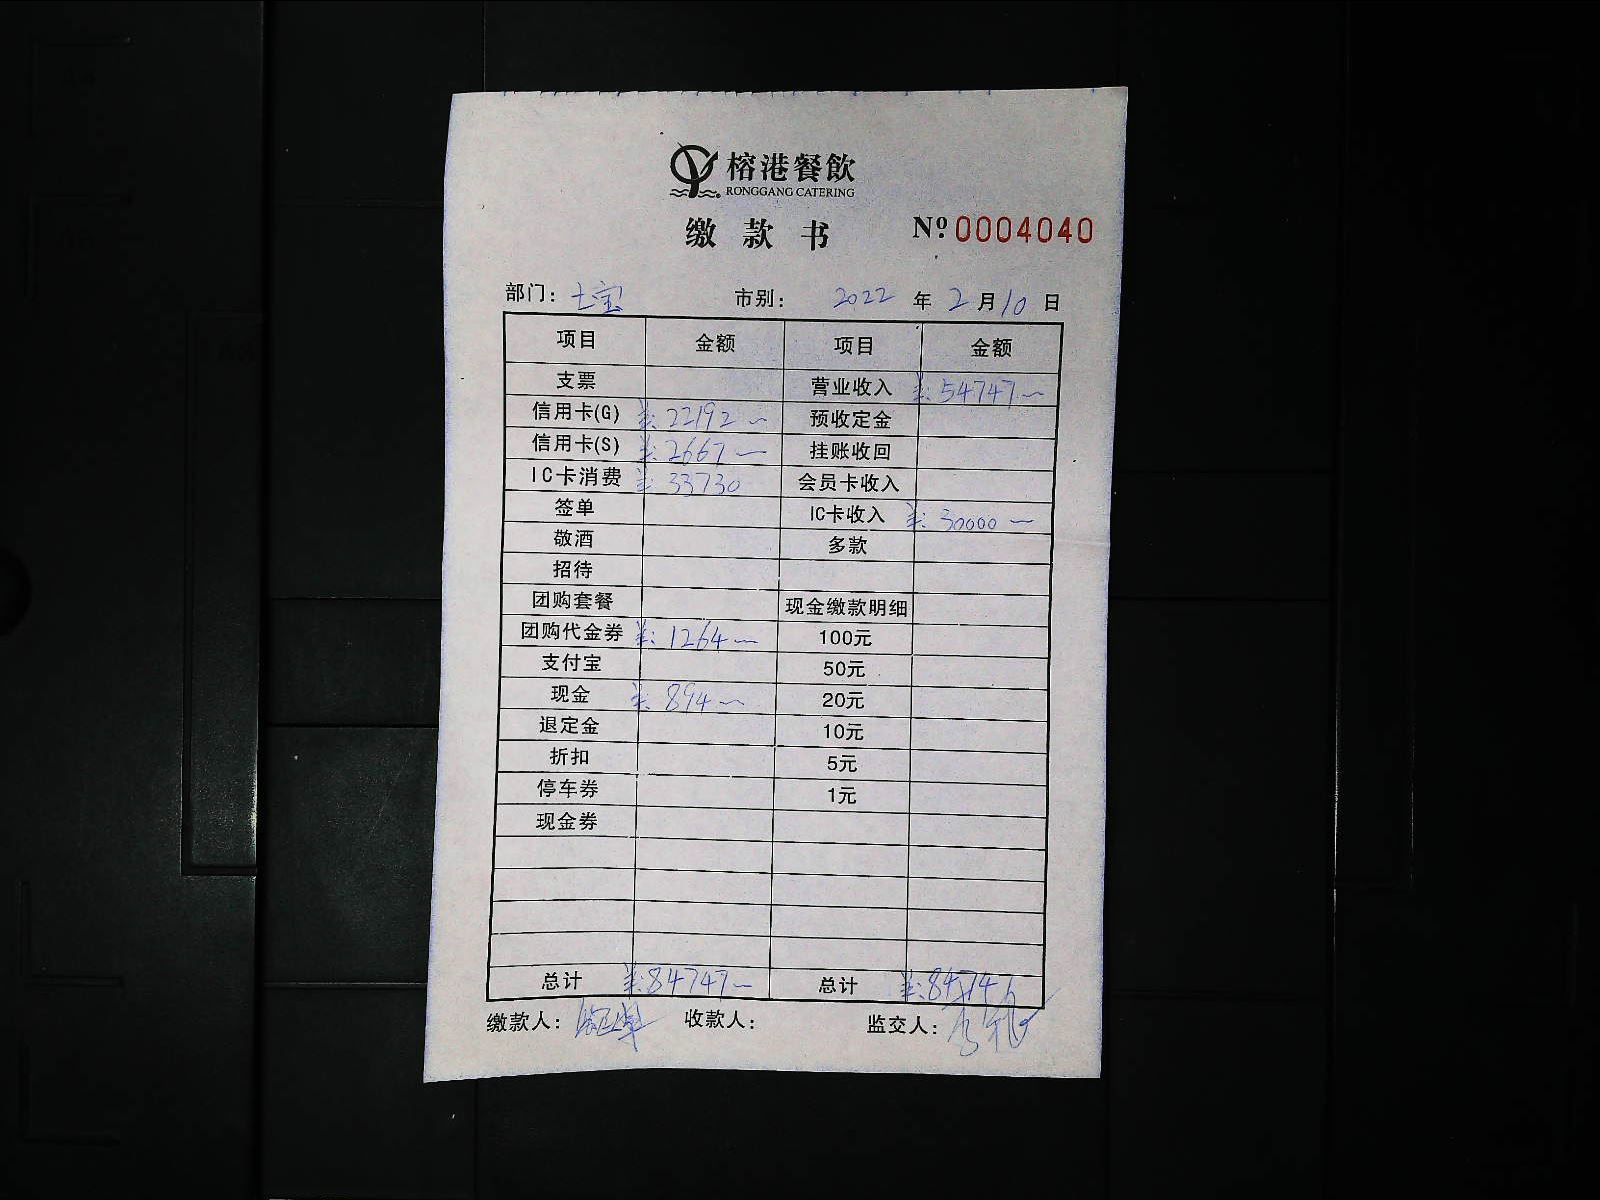 榕港餐飲
RONGGANG CATERING
缴款书 Nº 0004040
部门: 七宝 市别: 2022 年 2 月 10 日
项目 金额 项目 金额
支票 营业收入 ¥: 54747—
信用卡(G) ¥: 22192— 预收定金
信用卡(S) ¥: 2667— 挂账收回
IC卡消费 ¥: 33730 会员卡收入
签单 IC卡收入 ¥: 30000—
敬酒 多款
招待
团购套餐 现金缴款明细
团购代金券 ¥: 1264— 100元
支付宝 50元
现金 ¥: 894— 20元
退定金 10元
折扣 5元
停车券 1元
现金券
总计 ¥: 84747— 总计 ¥: 84747
缴款人: 收款人: 监交人: